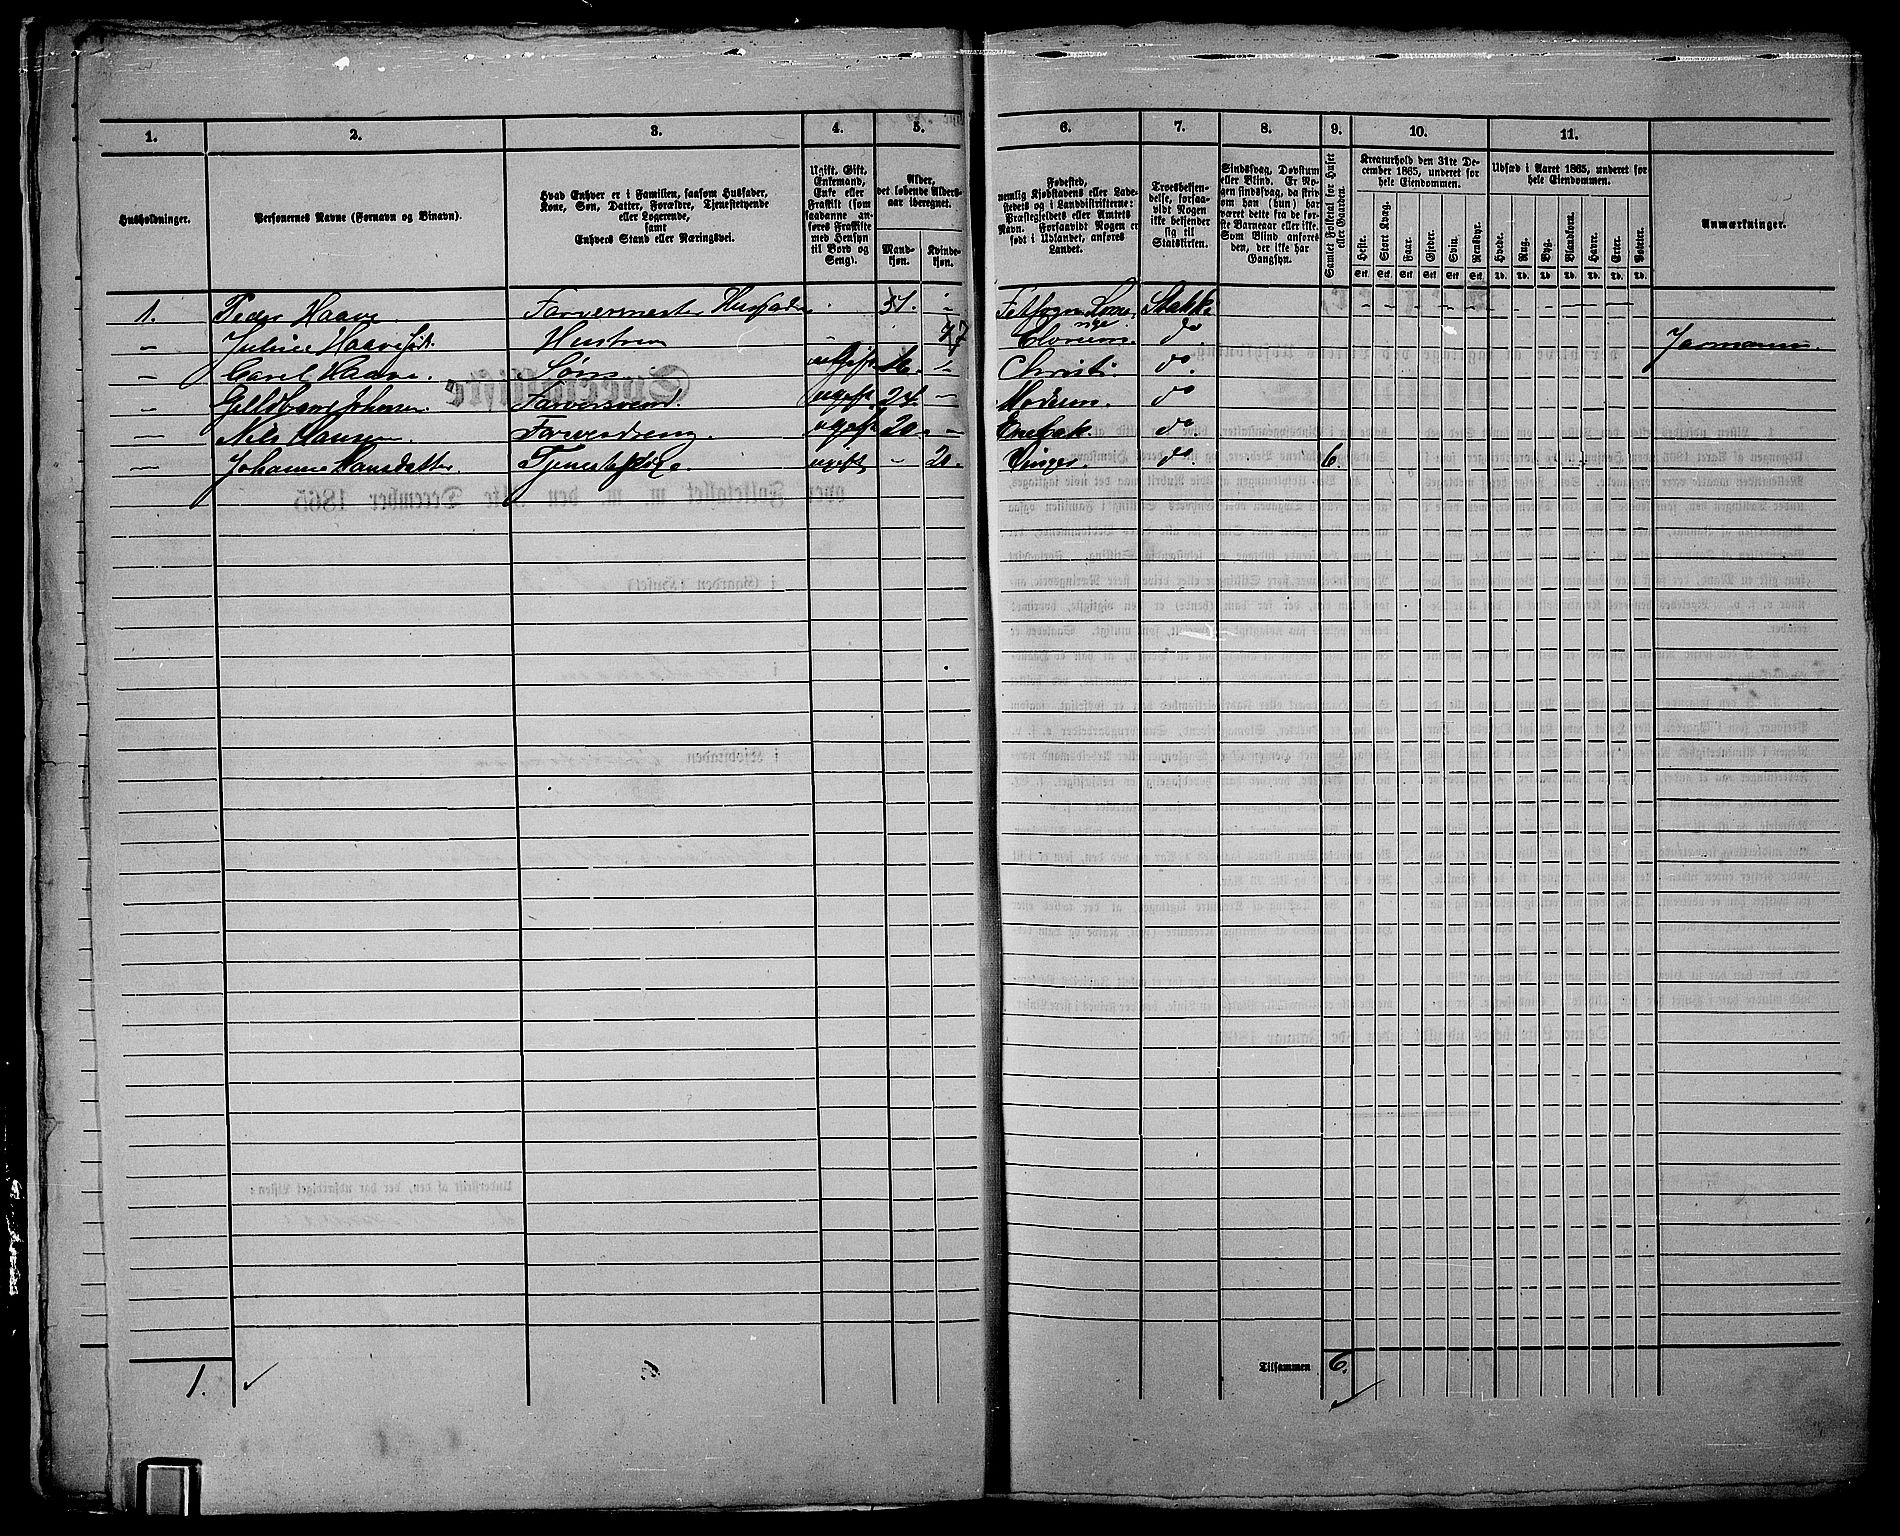 1. 2. 3. 4. 5. 6. 7. 8. 9. 10. 11.
Husholdninger.
Personernes Navne (Fornavn og Binavn).
Hvad Enhver er i Familien, saasom Husfader,
Kone, Søn, Datter, Forældre, Tjenestetyende
eller Logerende,
samt
Enhvers Stand eller Næringsvei.
Ugift, Gift,
Enkemand,
Enke eller
Fraskilt (som
saadanne an-
føres Fraskilte
med Hensyn
til Bord og
Seng).
Alder,
det løbende Alders-
aar iberegnet.
Mand-
kjøn.
Kvinde-
kjøn.
Fødested,
nemlig Kjøbstadens eller Lade-
stedets og i Landdistrikterne:
Præstegjeldets eller Amtets
Navn. Forsaavidt Nogen er
født i Udlandet, anføres
Landet.
Troesbekjen-
delse, forsaa-
vidt Nogen
ikke bekjender
sig til
Statskirken.
Sindssvag, Døvstum
eller Blind. Er No-
gen sindssvag, da skriv
om han (hun) har
været dette fra de før-
ste Barneaar eller ikke.
Som Blind anføres
den, der ikke har
Gangsyn.
Samlet Folketal for Huset
eller Gaarden.
Kreaturhold den 31te De-
cember 1865, underet for
hele Eiendommen.
Heste. Stort Kvæg. Faar. Gjeder. Sviin. Rensdyr.
Stk. Stk. Stk. Stk. Stk. Stk.
Udsæd i Aaret 1865, underet for
hele Eiendommen.
Hvede. Rug. Byg. Blandkorn. Havre. Erter. Poteter.
Td. Td. Td. Td. Td. Td. Td.
Anmærkninger.
1. Peder Haave Farvermester Husfader 51. Statsk
— Juline Haave Hustru 47 do
— Carel Haave. Søn ugift 16. Christi. do
— Johnsen Farversvend. ugift Modum. do
— Nils Hansen Farverdreng. ugift 20. — Enebak. do
— Johanne Hansdatter Tjenestepige ugift — 20. Vinger. do 6.
1.
Tilsammen 6.